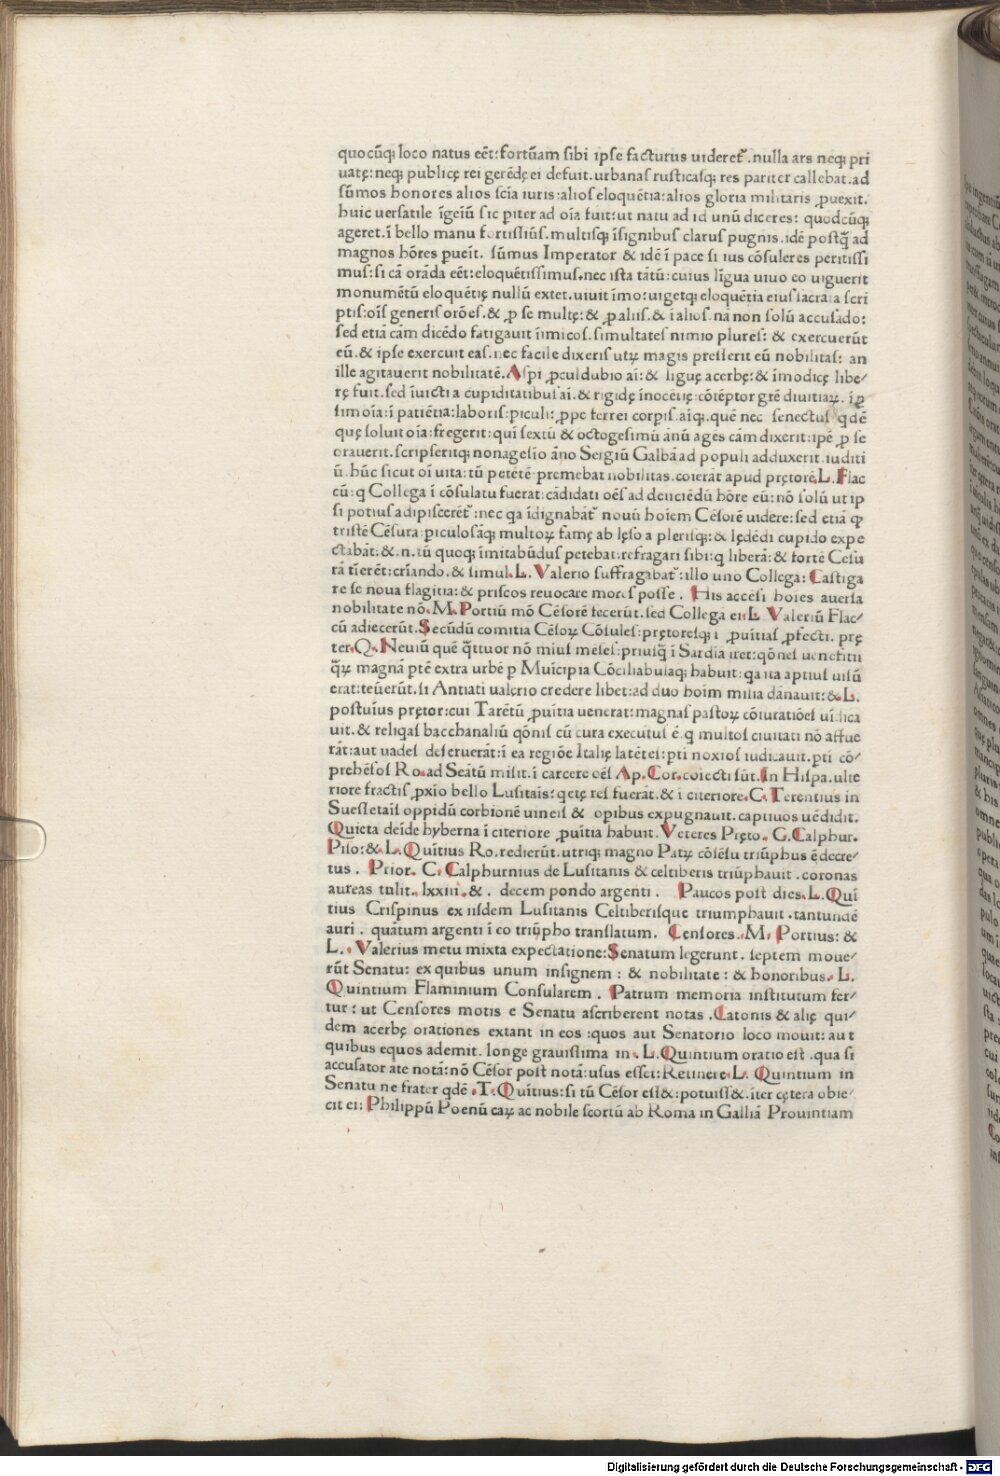 quocūqꝫ loco natus eēt: fortūam sibi ipse facturus uideret᷑. nulla ars neqꝫ pri
uatę: neqꝫ publicę rei gerēdę ei defuit. urbanas rusticasqꝫ res pariter callebat. ad
sūmos honores alios scīa iuris: alios eloquētia: alios gloria militaris ꝓuexit.
huic uersatile īgeīū sic piter ad oīa fuit: ut natu ad id unū diceres: quodcūqꝫ
ageret. ī bello manu fortissiūs. multisqꝫ īsignibus clarus pugnis. idē postq̄ ad
magnos hōres pueīt. sūmus Imperator & idē ī pace si ius cōsuleres peritissi
mus: si cā orāda eēt: eloquētissimus. nec ista tātū: cuius līgua uiuo eo uiguerit
monumētū eloquētię nullū extet. uiuit īmo: uigetqꝫ eloquētia eius sacrata scri
ptis: oīs generis orōes. & ꝓ se multę: & ꝓ aliis. & ī alios. nā non solū accusādo:
sed etiā cām dicēdo fatigauit īimicos. simultates nimio plures: & exercuerūt
eū. & ipse exercuit eas. nec facile dixeris utꝝ magis presserit eū nobilitas: an
ille agitauerit nobilitatē. Aspi ꝓculdubio aī: & liguę acerbę: & īmodicę libe⸗
rę fuit. sed īuicti a cupiditatibus aī. & rigidę īnocētię: cōtēptor grē diuitiaꝝ. ī ꝑ
simoīa: ī patiētia: laboris: piculi: ꝓpe ferrei corpis. aīqꝫ. quē nec senectus qdē
quę soluit oīa: fregerit: qui sextū & octogesimū ānū ages cām dixerit: ipē ꝓ se
orauerit. scripseritqꝫ: nonagesīo āno Sergiū Galbā ad populi adduxerit. iuditi
ū. hūc sicut oī uita: tū petētē premebat nobilitas. coierāt apud pretorē. L. Flac
cū: q Collega ī cōsulatu fuerat: cādidati oēs ad deiiciēdū hōre eū: nō solū ut ip
si potius adipisceret᷑: nec qa īdignabāt᷑ nouū hoīem Cēsorē uidere: sed etiā qꝫ
tristē Cēsurā: piculosāqꝫ: multoꝝ famę ab lęso a plerisqꝫ: & lędēdi cupido expe
ctabāt: &. n. tū quoqꝫ īmitabūdus petebat: refragari sibi: q liberā: & fortē Cēsu
rā tīerēt: crīando. & simul. L. Valerio suffragabat᷑: illo uno Collega: Castiga
re se noua flagitia: & priscos reuocare mores posse. His accēsi hoīes auersa
nobilitate nō. M. Portiū mō Cēsorē fecerūt. sed Collega ei. L. Valeriū Flac⸗
cū adiecerūt. Secūdū comitia Cēsoꝝ Cōsules: pretoresqꝫ ī ꝓuītias ꝓfecti. pre
ter. Q. Neuiū quē q̄ttuor nō mīus mēses: priusq̄ ī Sardīa iret: qōnes uenefitii
q̄ꝝ magnā ptē extra urbē p Muīcipia Cōciliabulaqꝫ habuit: qa ita aptius uisū
erat: teuerūt. si Antiati ualerio credere libet: ad duo hoīm milia dānauit: & L.
postuīus pretor: cui Tarētū ꝓuītia uenerat: magnas pastoꝝ cōiuratiōes uīdica
uit. & reliqas bacchanaliū qōnis cū cura executus ē. q multos ciuitati nō affue
rāt: aut uades deseruerāt: ī ea regiōe Italię latētes: pti noxios iudicauit. pti cō⸗
prehēsos Ro. ad Seātū misit. ī carcere oēs Ap. Cor. coiecti sūt. In Hispa. ulte
riore fractis ꝓxīo bello Lusitais: qetę res fuerāt. & ī citeriore. C. Terentius in
Suessetais oppidū corbionē uineis & opibus expugnauit. captiuos uēdidit.
Quieta deīde hyberna ī citeriore ꝓuītia habuit. Veteres Preto. C. Calphur.
Piso: & L. Quītius Ro. redierūt. utriqꝫ magno Patꝝ cōsēsu triūphus ē decre⸗
tus. Prior. C. Calphurnius de Lusitanis & celtiberis triūphauit. coronas
aureas tulit. lxxiii. &. decem pondo argenti. Paucos post dies. L. Quī
tius Crispinus ex iisdem Lusitanis Celtiberisque triumphauit. tantundē
auri. quātum argenti ī eo triūpho translatum. Censores. M. Portius: &
L. Valerius metu mixta expectatione: Senatum legerunt. septem moue⸗
rūt Senatu: ex quibus unum insignem: & nobilitate: & honoribus. L.
Quintium Flaminium Consularem. Patrum memoria institutum fer⸗
tur: ut Censores motis e Senatu ascriberent notas. Catonis & alię qui⸗
dem acerbę orationes extant in eos: quos aut Senatorio loco mouit: aut
quibus equos ademit. longe grauissima in. L. Quintium oratio est. qua si
accusator āte notā: nō Cēsor post notā: usus esset: Retinere. L. Quintium in
Senatu ne frater qdē. T. Quītius: si tū Cēsor ess&: potuiss&. īter cętera obie⸗
cit ei: Philippū Poenū caꝝ ac nobile scortū ab Roma in Galliā Prouintiam
Digitalisierung gefördert durch die Deutsche Forschungsgemeinschaft - DFG